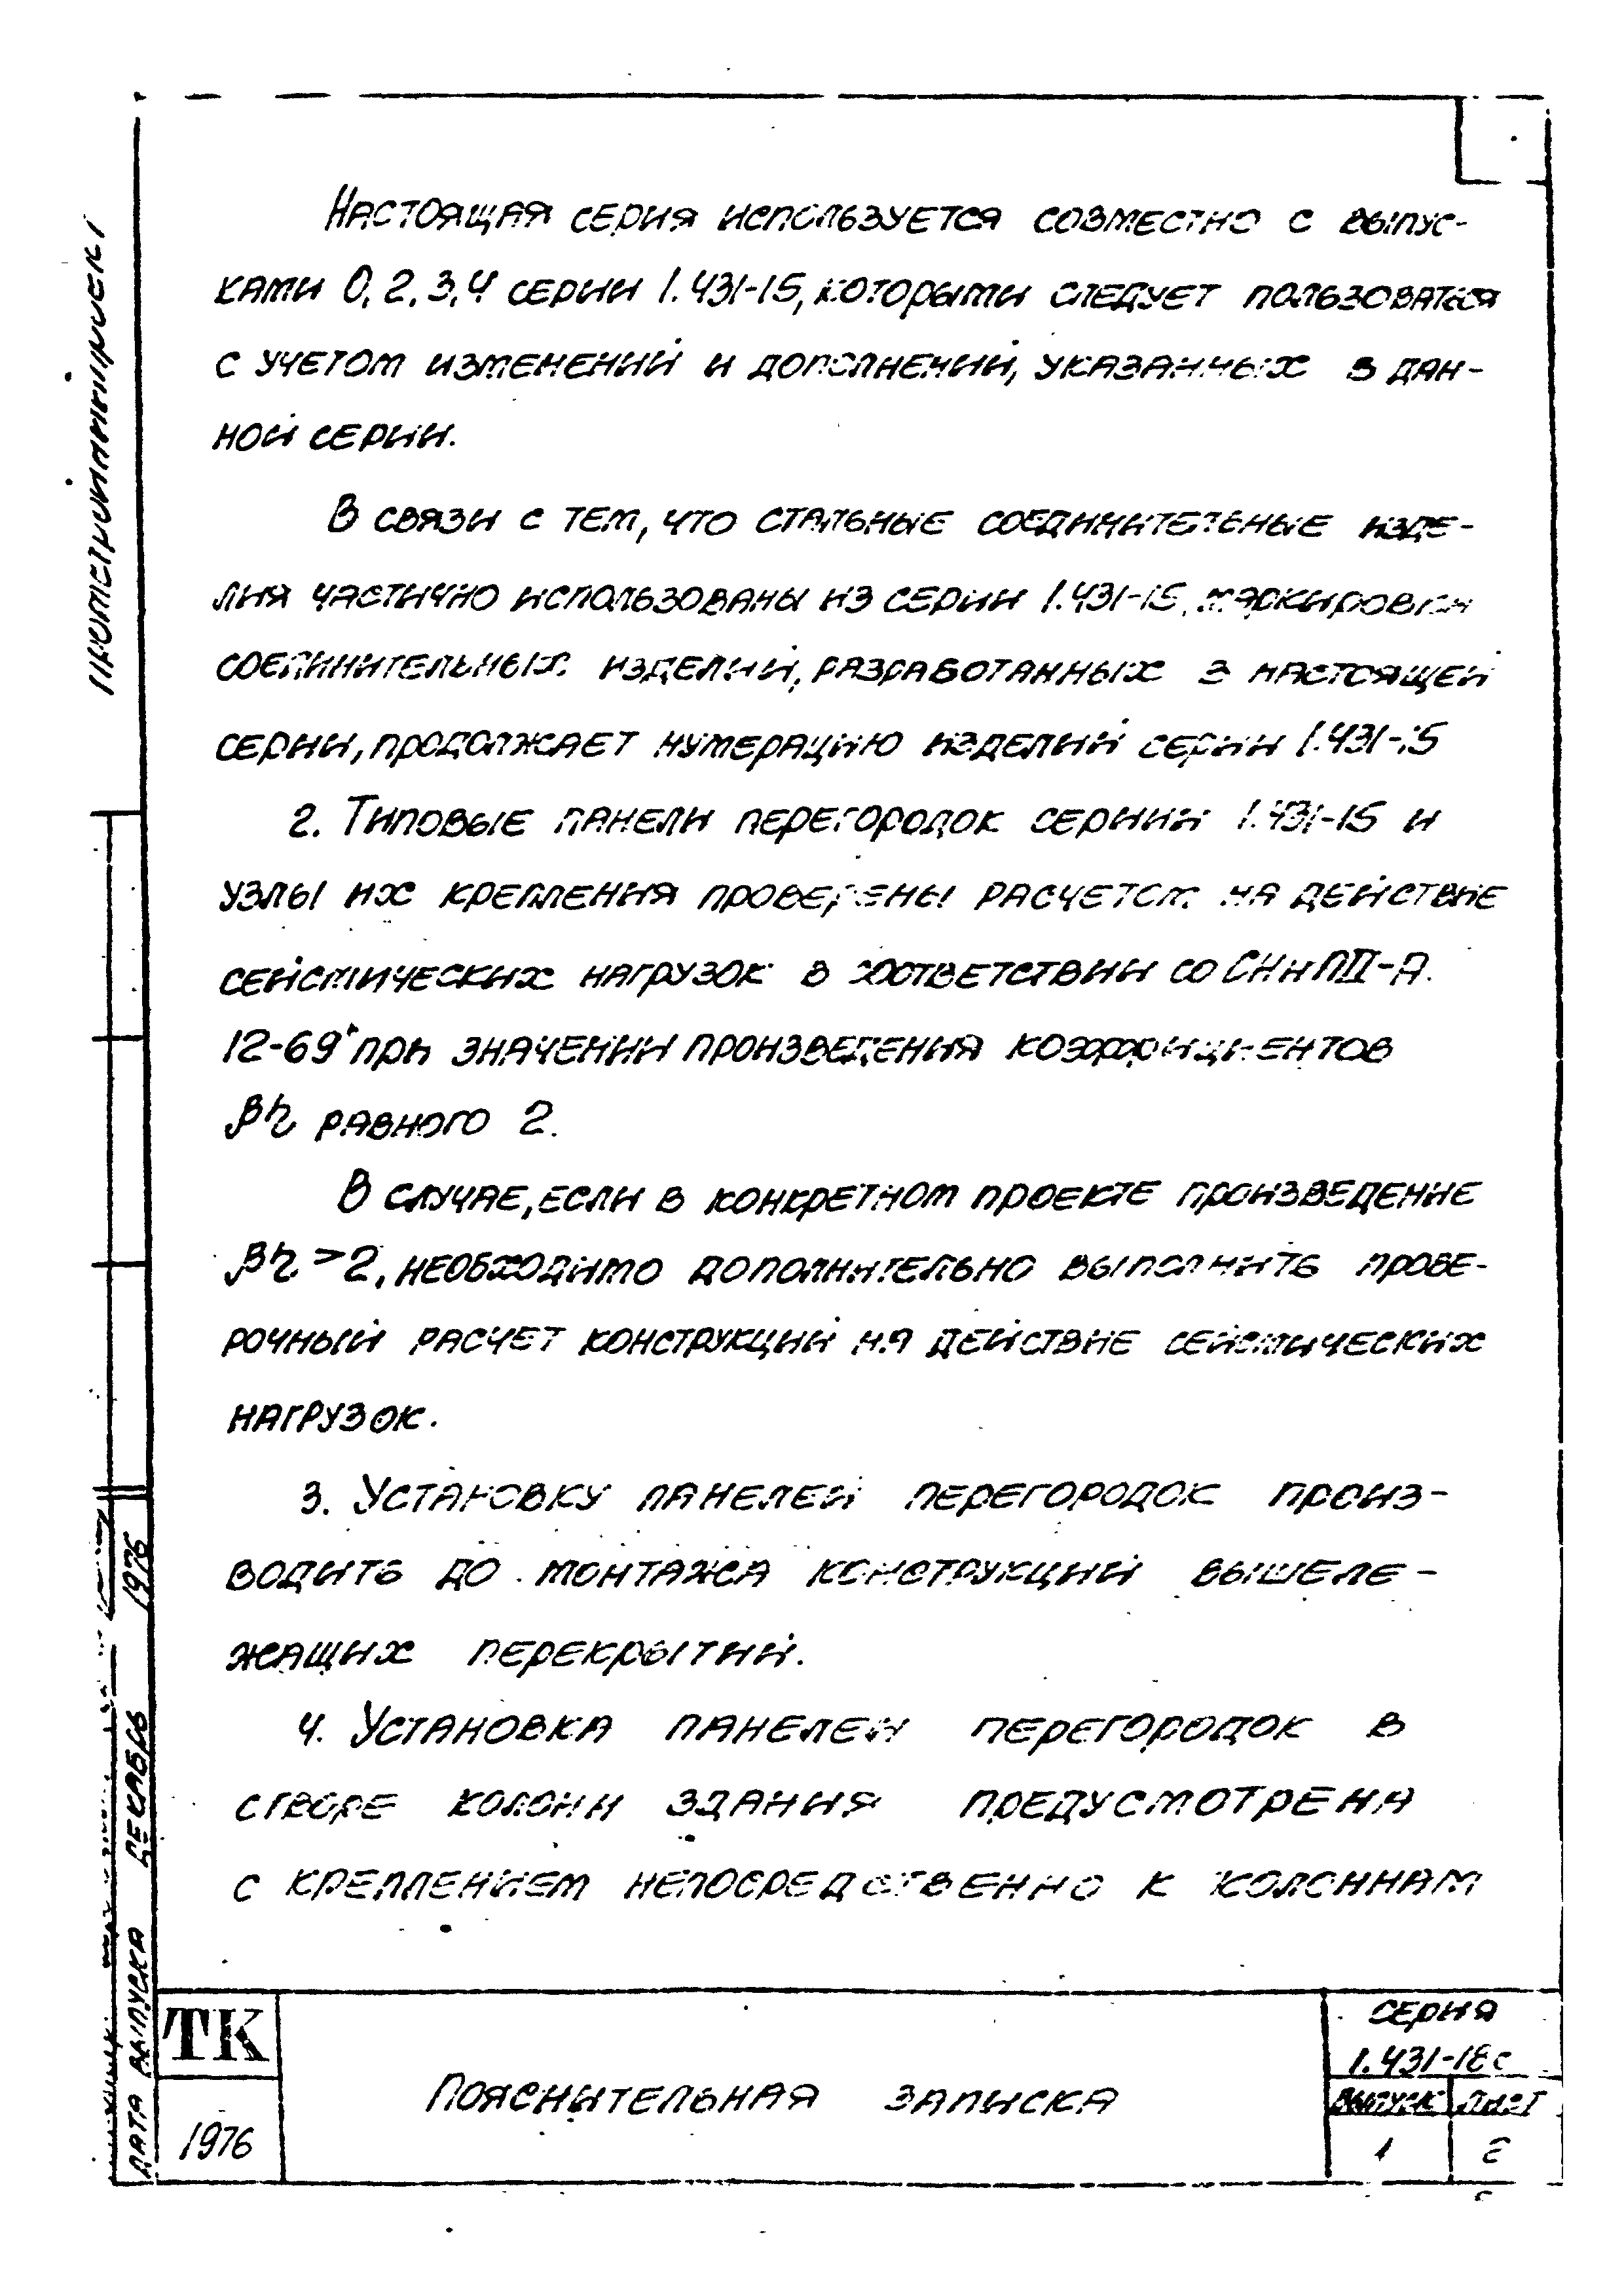 Настоящая серия используется совместно с выпус-
ками 0, 2, 3, 4 серии 1.431-15, которыми следует пользоваться
с учетом изменений и дополнений, указанных в дан-
ной серии.
В связи с тем, что стальные соединительные изде-
лия частично использованы из серии 1.431-15, маркировка
соединительных изделий, разработанных в настоящей
серии, продолжает нумерацию изделий серии 1.431-15
2. Типовые панели перегородок сериии 1.431-15 и
узлы их крепления проверены расчетом на действие
сейсмических нагрузок в соответствии со СНиПII-А.
12-69* при значении произведения коэффициентов
βη равного 2.
В случае, если в конкретном проекте произведение
βη >2, необходимо дополнительно выполнить прове-
рочный расчет конструкций на действие сейсмических
нагрузок.
3. Установку панелей перегородок произ-
водить до монтажа конструкций вышеле-
жащих перекрытий.
4. Установка панелей перегородок в
створе колонн здания предусмотрена
с креплением непосредственно к колоннам
ТК
1976
Пояснительная записка
серия
1.431-18с
выпуск лист
1
Дата выпуска декабрь 1976